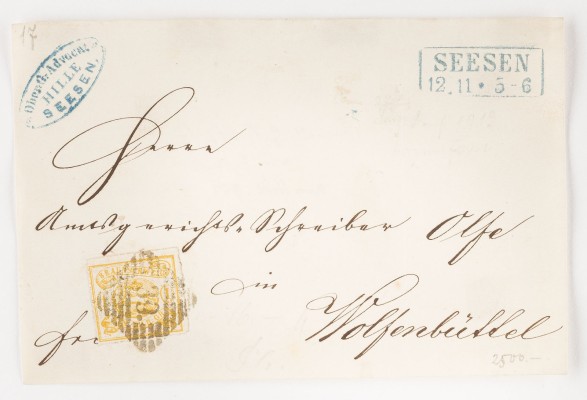 17
Oberg.-Advocat
HILLE
SEESEN.
SEESEN
12.11 • 5-6
Herrn
Amtsgerichts-Schreiber Olfe
in
Wolfenbüttel
2500.-